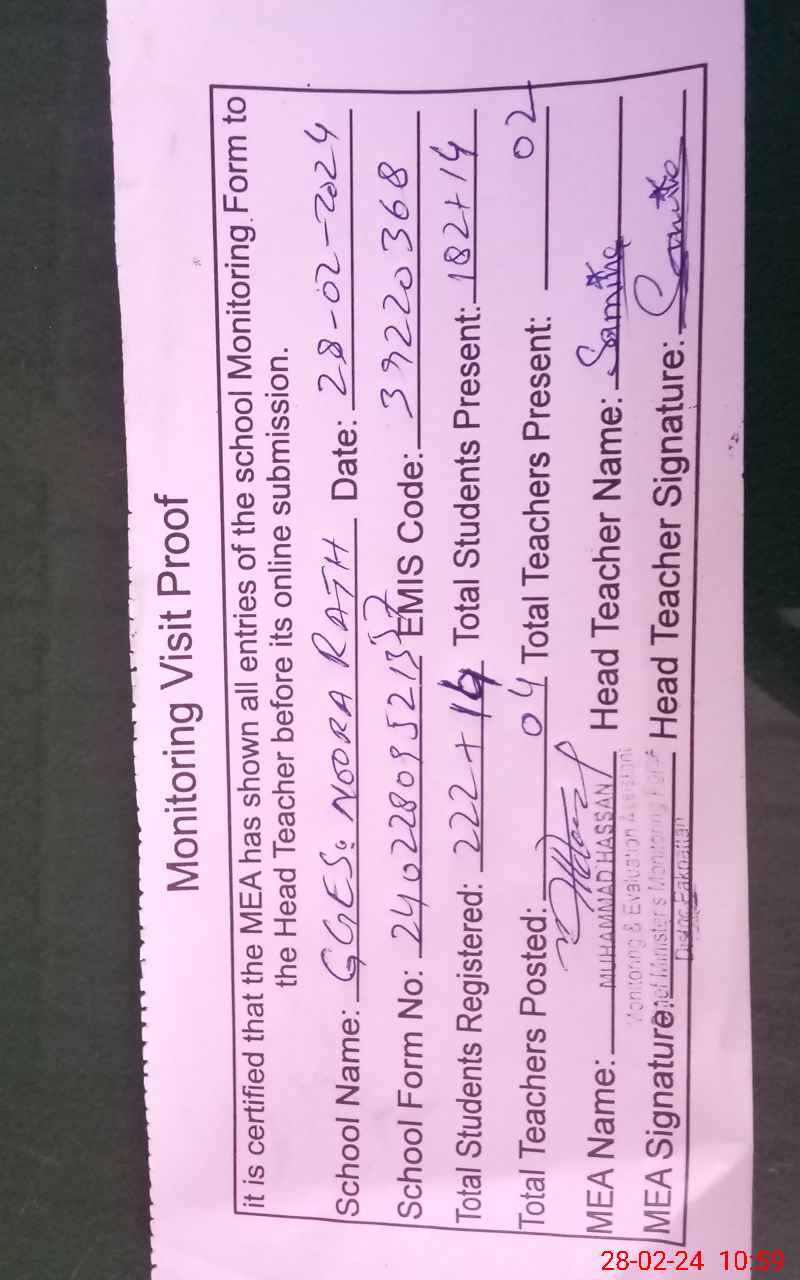 Monitoring Visit Proof
it is certified that the MEA has shown all entries of the school Monitoring Form to
the Head Teacher before its online submission.
School Name: GGES: NOORA RATH Date: 28-02-2024
School Form No: EMIS Code: 39220368
Total Students Registered: 222+14 Total Students Present: 182+14
Total Teachers Posted: 04 Total Teachers Present: 02
MEA Name: MUHAMMAD HASSAN Head Teacher Name:
Monitoring & Evaluation Assistant
MEA Signature: Chief Minister's Monitoring Force Head Teacher Signature:
District Pakpattan
28-02-24 10:59